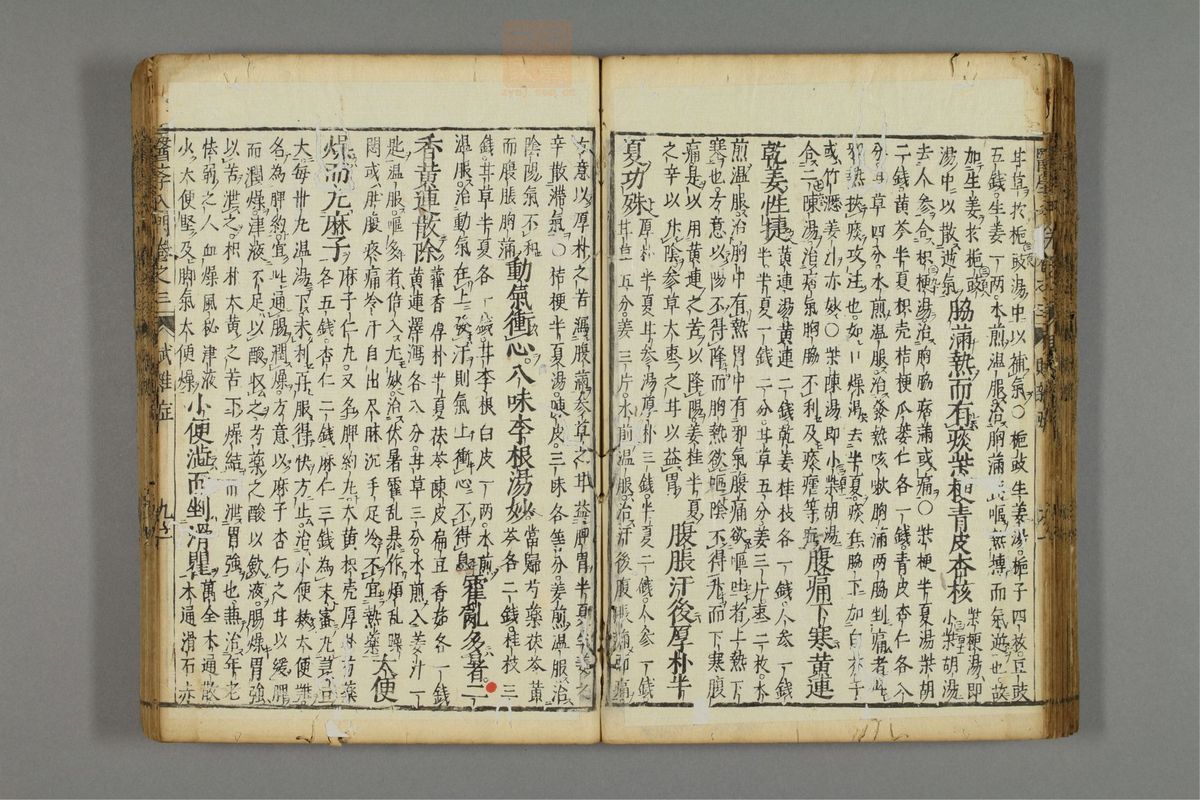 甘草於梔豉湯中以補氣○梔豉生姜湯梔子四枚豆豉
五錢生姜一兩水煎温服治胸滿
熱搏而氣逆也故
加生姜於梔豉
湯中以散逆氣
脇滿熱而有痰柴梗青皮杏核
柴梗湯即
小柴胡湯
去人參合枳梗湯治胸脇痞滿或痛○柴梗半夏湯柴胡
二錢黃芩半夏枳壳桔梗瓜蔞仁各一錢青皮杏仁各八
分甘草四分水煎温服治發熱咳嗽胸滿兩脇刺痛者此
邪熱挾痰攻注也如口燥渴去半夏痰在脇下加白芥子
或竹瀝姜汁亦妙○柴陳湯即小柴胡湯
合二陳湯治痰氣胸脇不利及痰瘧等疾
腹痛下寒黃連
乾姜性捷
黃連湯黃連二錢乾姜桂枝各一錢人參一錢
半半夏一錢二分甘草五分姜三片棗二枚水
煎温服治胸中有熱胃中有邪氣腹痛欲嘔吐者上熱下
寒也方意以陽不得降而胸熱欲嘔陰不得升而下寒腹
痛是以用黃連之苦以降陽姜桂半夏
之辛以升陰參草大棗之甘以益胃
腹脹汗後厚朴半
夏功殊
厚朴半夏甘參湯厚朴三錢半夏二錢人參一錢
甘草二五分姜三片水煎温服治汗後腹脹痛
方意以厚朴之苦瀉腹滿參草之甘益脾胃半夏生姜之
辛散滯氣○桔梗半夏湯陳皮三味各等分姜煎温服治
陰陽氣不和
而腹脹胸滿
動氣衝心八味李根湯妙
當歸芍藥茯苓黃
芩各二錢桂枝三
錢甘草半夏各一錢甘李根白皮一兩水煎
温服治動氣在上發汗則氣上衝心不得息
霍亂多暑二
香黃連散除
藿香厚朴半夏茯苓陳皮扁豆香茹各一錢
黃連澤瀉各八分甘草三分水煎入姜汁一
匙温服嘔多者倍入尤妙治伏暑霍亂暴作煩乱躁
悶或腹疼痛冷汗自出尺脉沉手足冷不宜熱藥
大便
燥而凡麻子
麻子仁九又名脾約九大黃枳壳厚朴芍藥
各五錢杏仁二錢麻仁三錢為末蜜九
大每卅九温湯下未利再服得快方止治小便秘大便難
名為脾約宜此通腸潤燥方意以麻子杏仁之甘以緩脾
而潤燥津液不足以酸収之芍藥之酸以斂液腸燥胃強
以苦泄之枳朴大黃之苦下燥結而泄胃強也兼治年老
怯弱之人血燥風秘津液
少大便堅及脚氣大便燥
小便澁而剉滑瞿
萬全木通散
木通滑石赤
醫學入門卷之三
雜症